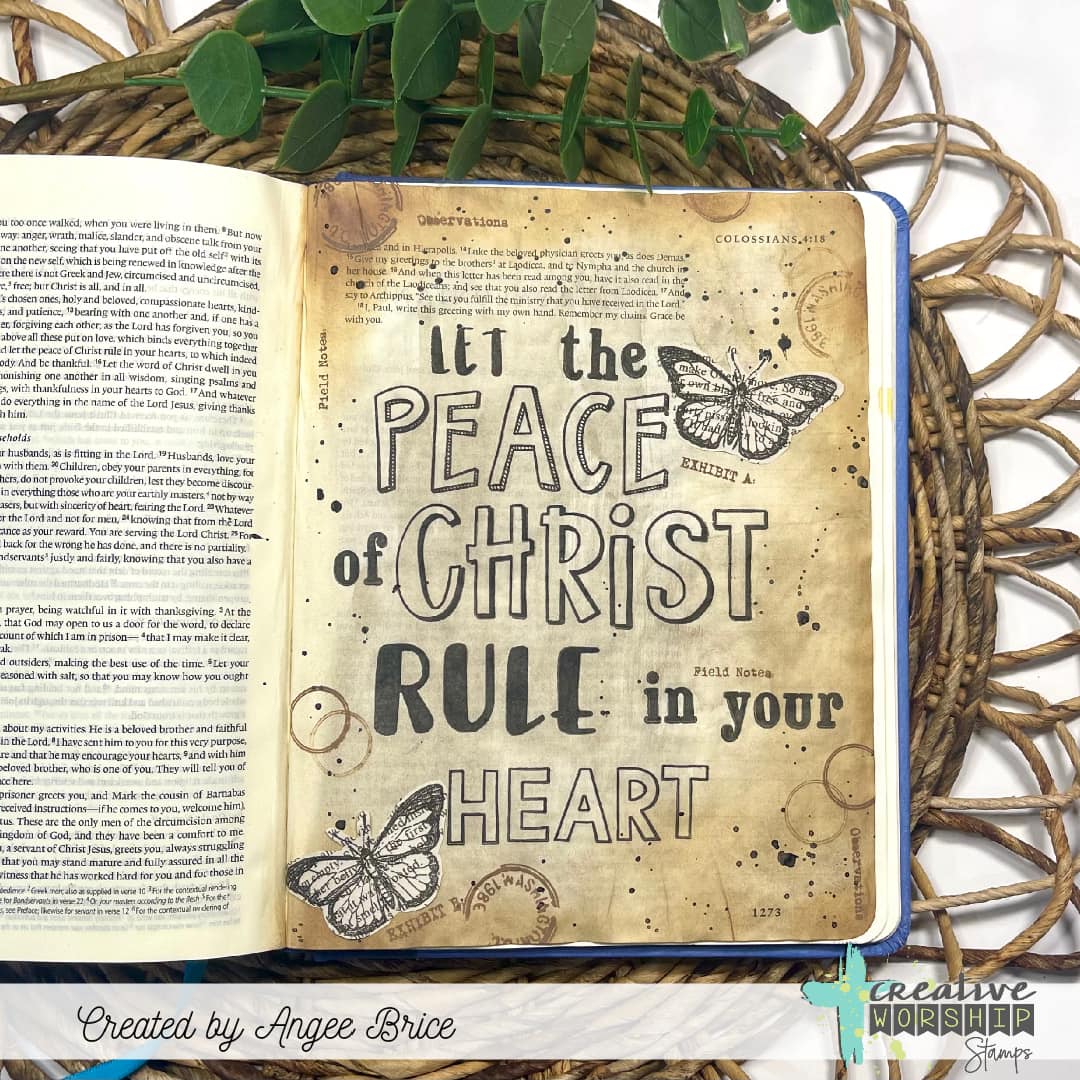 ou too once walked, when you were living in them. 8But now
way: anger, wrath, malice, slander, and obscene talk from your
ne another, seeing that you have put off the old self with its
on the new self, which is being renewed in knowledge after the
ere there is not Greek and Jew, circumcised and uncircumcised,
free; but Christ is all, and in all.
's chosen ones, holy and beloved, compassionate hearts, kind-
and patience, 13bearing with one another and, if one has a
er, forgiving each other; as the Lord has forgiven you, so you
above all these put on love, which binds everything together
d let the peace of Christ rule in your hearts, to which indeed
ody. And be thankful. 16Let the word of Christ dwell in you
monishing one another in all wisdom, singing psalms and
gs, with thankfulness in your hearts to God. 17And whatever
do everything in the name of the Lord Jesus, giving thanks
h him.
seholds
r husbands, as is fitting in the Lord. 19Husbands, love your
with them. 20Children, obey your parents in everything, for
hers, do not provoke your children, lest they become discour-
in everything those who are your earthly masters, not by way
asers, but with sincerity of heart, fearing the Lord. 23Whatever
r the Lord and not for men, 24knowing that from the Lord
ance as your reward. You are serving the Lord Christ. 25For
back for the wrong he has done, and there is no partiality.
ndservants justly and fairly, knowing that you also have a
prayer, being watchful in it with thanksgiving. 3At the
that God may open to us a door for the word, to declare
count of which I am in prison— 4that I may make it clear,
ak.
d outsiders, making the best use of the time. 6Let your
easoned with salt, so that you may know how you ought
about my activities. He is a beloved brother and faithful
in the Lord. 8I have sent him to you for this very purpose,
re and that he may encourage your hearts, 9and with him
beloved brother, who is one of you. They will tell you of
ce here.
prisoner greets you, and Mark the cousin of Barnabas
received instructions—if he comes to you, welcome him),
tus. These are the only men of the circumcision among
ingdom of God, and they have been a comfort to me
u, a servant of Christ Jesus, greets you, always struggling
that you may stand mature and fully assured in all the
witness that he has worked hard for you and for those in
Observations
COLOSSIANS 4:18
and in Hierapolis. 14Luke the beloved physician greets you, as does Demas.
15Give my greetings to the brothers at Laodicea, and to Nympha and the church in
her house. 16And when this letter has been read among you, have it also read in the
church of the Laodiceans; and see that you also read the letter from Laodicea. 17And
say to Archippus, "See that you fulfill the ministry that you have received in the Lord."
18I, Paul, write this greeting with my own hand. Remember my chains. Grace be
with you.
Field Notes
LET the
PEACE
EXHIBIT A:
of CHRiST
Field Notes
RULE in your
HEART
EXHIBIT B
Observations
1273
Created by Angee Brice
creative
WORSHIP
Stamps